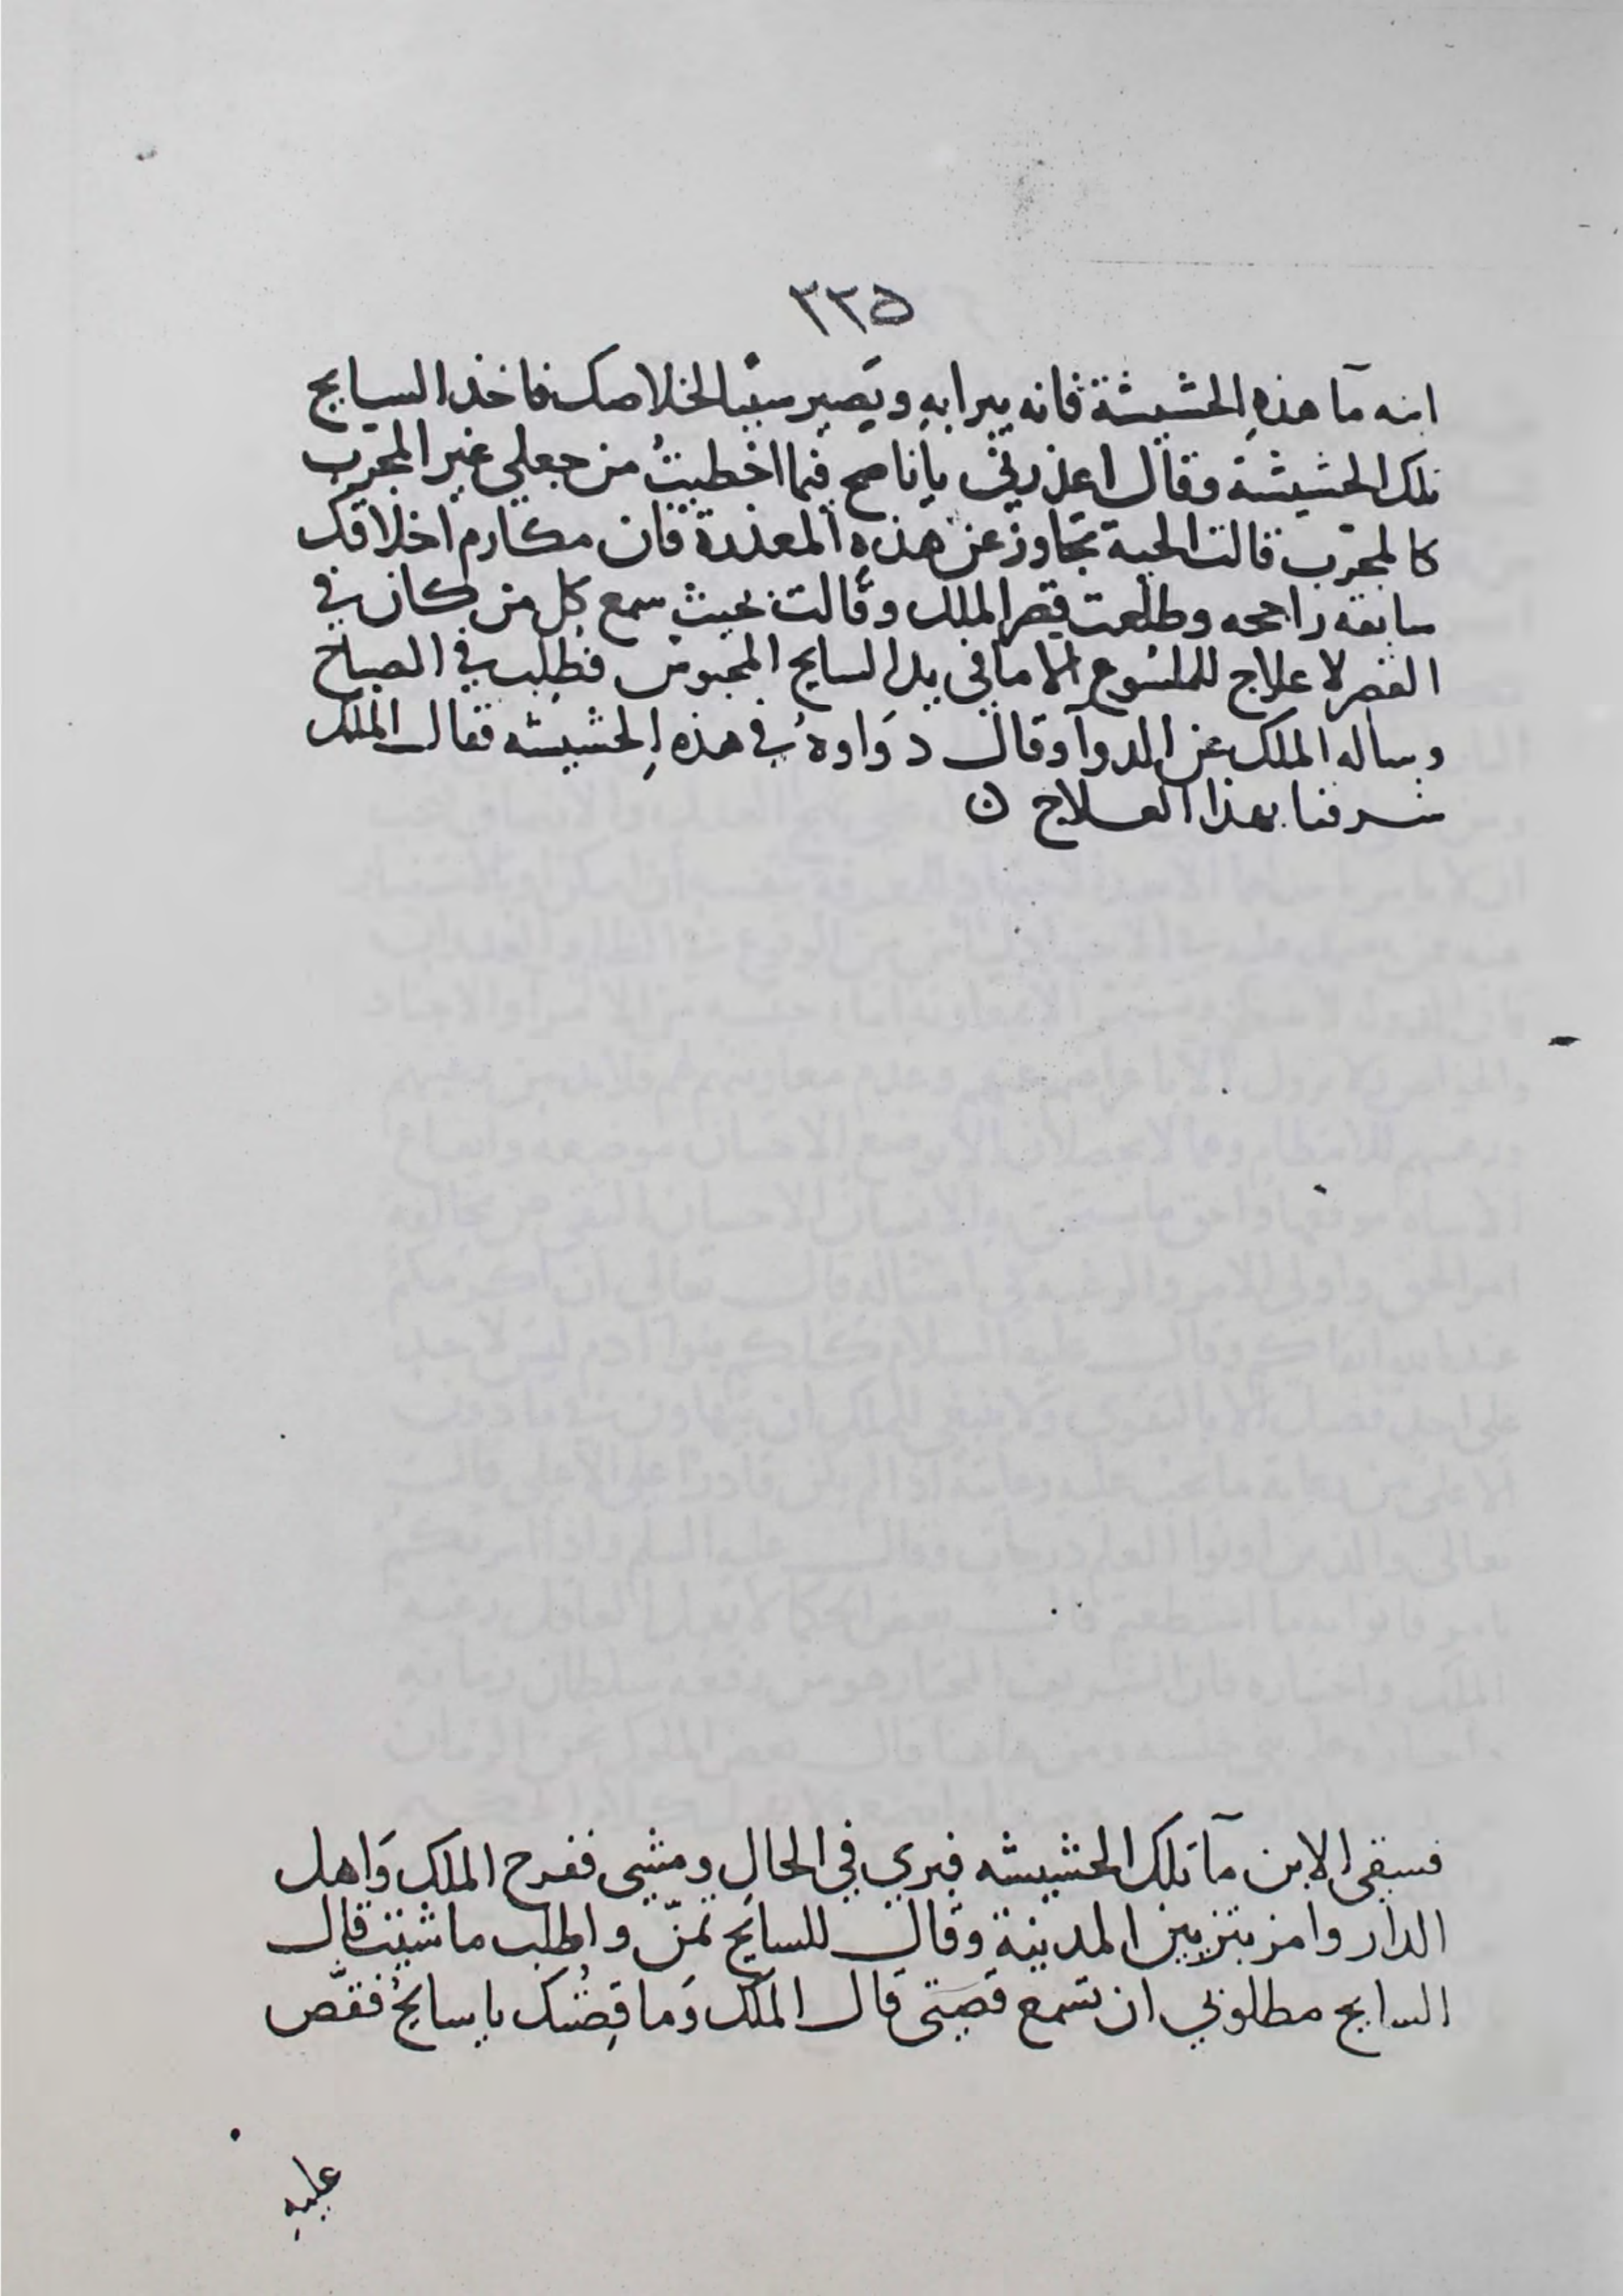 ٢٢٥
ابنه مآ هذهِ الحشيشة فانه يبرا بهِ ويَصير سببًا لخلاصك فاخذ السايح
تلك الحشيشة وقال اعذريني يا ناصح فيما اخطيتُ من جعلي غير المجرّب
كالمجرّب قالت الحية تجاوز عن هذهِ المعذرة فان مكارم اخلاقك
سابقه راجحه وطلعت قصر الملك وقالت بحيث سمع كل من كان في
القصر لا علاج للملسُوع الا ما في يد السايح المحبوس فطلِب في الصباح
وساله الملك عن الدوآ وقال دَواوهُ في هذهِ الحشيشه فقال الملك
شرفنا بهذا العلاج ن
فسقى الابن مآ تلك الحشيشه فبري في الحالِ ومشى ففرح الملك وَاهل
الدار وامر بتزيين المدينةِ وقال للسايح تمنّ واطلب ما شيت قال
السايح مطلوبي ان تسمع قصتي قال الملك وَما قِصّتك يا سايحُ فقصّ
عليهِ